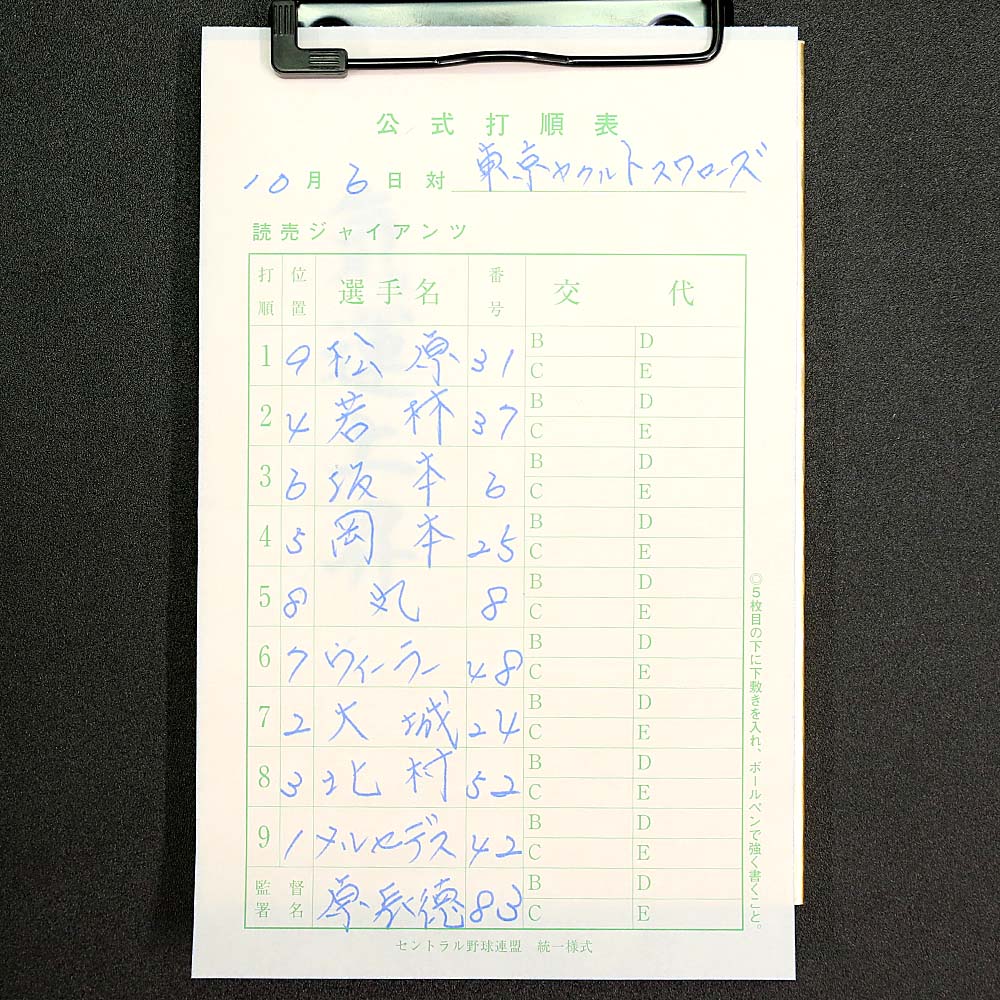 公式打順表
10月6日対 東京ヤクルトスワローズ
読売ジャイアンツ
打順 位置 選手名 番号 交代
1 9 松原 31 B D
C E
2 4 若林 37 B D
C E
3 6 坂本 6 B D
C E
4 5 岡本 25 B D
C E
5 8 丸 8 B D
C E
6 7 ウィーラー 48 B D
C E
7 2 大城 24 B D
C E
8 3 北村 52 B D
C E
9 1 メルセデス 42 B D
C E
監督署名 原辰徳 83 B D
C E
セントラル野球連盟 統一様式
◎5枚目の下に下敷きを入れ、ボールペンで強く書くこと。